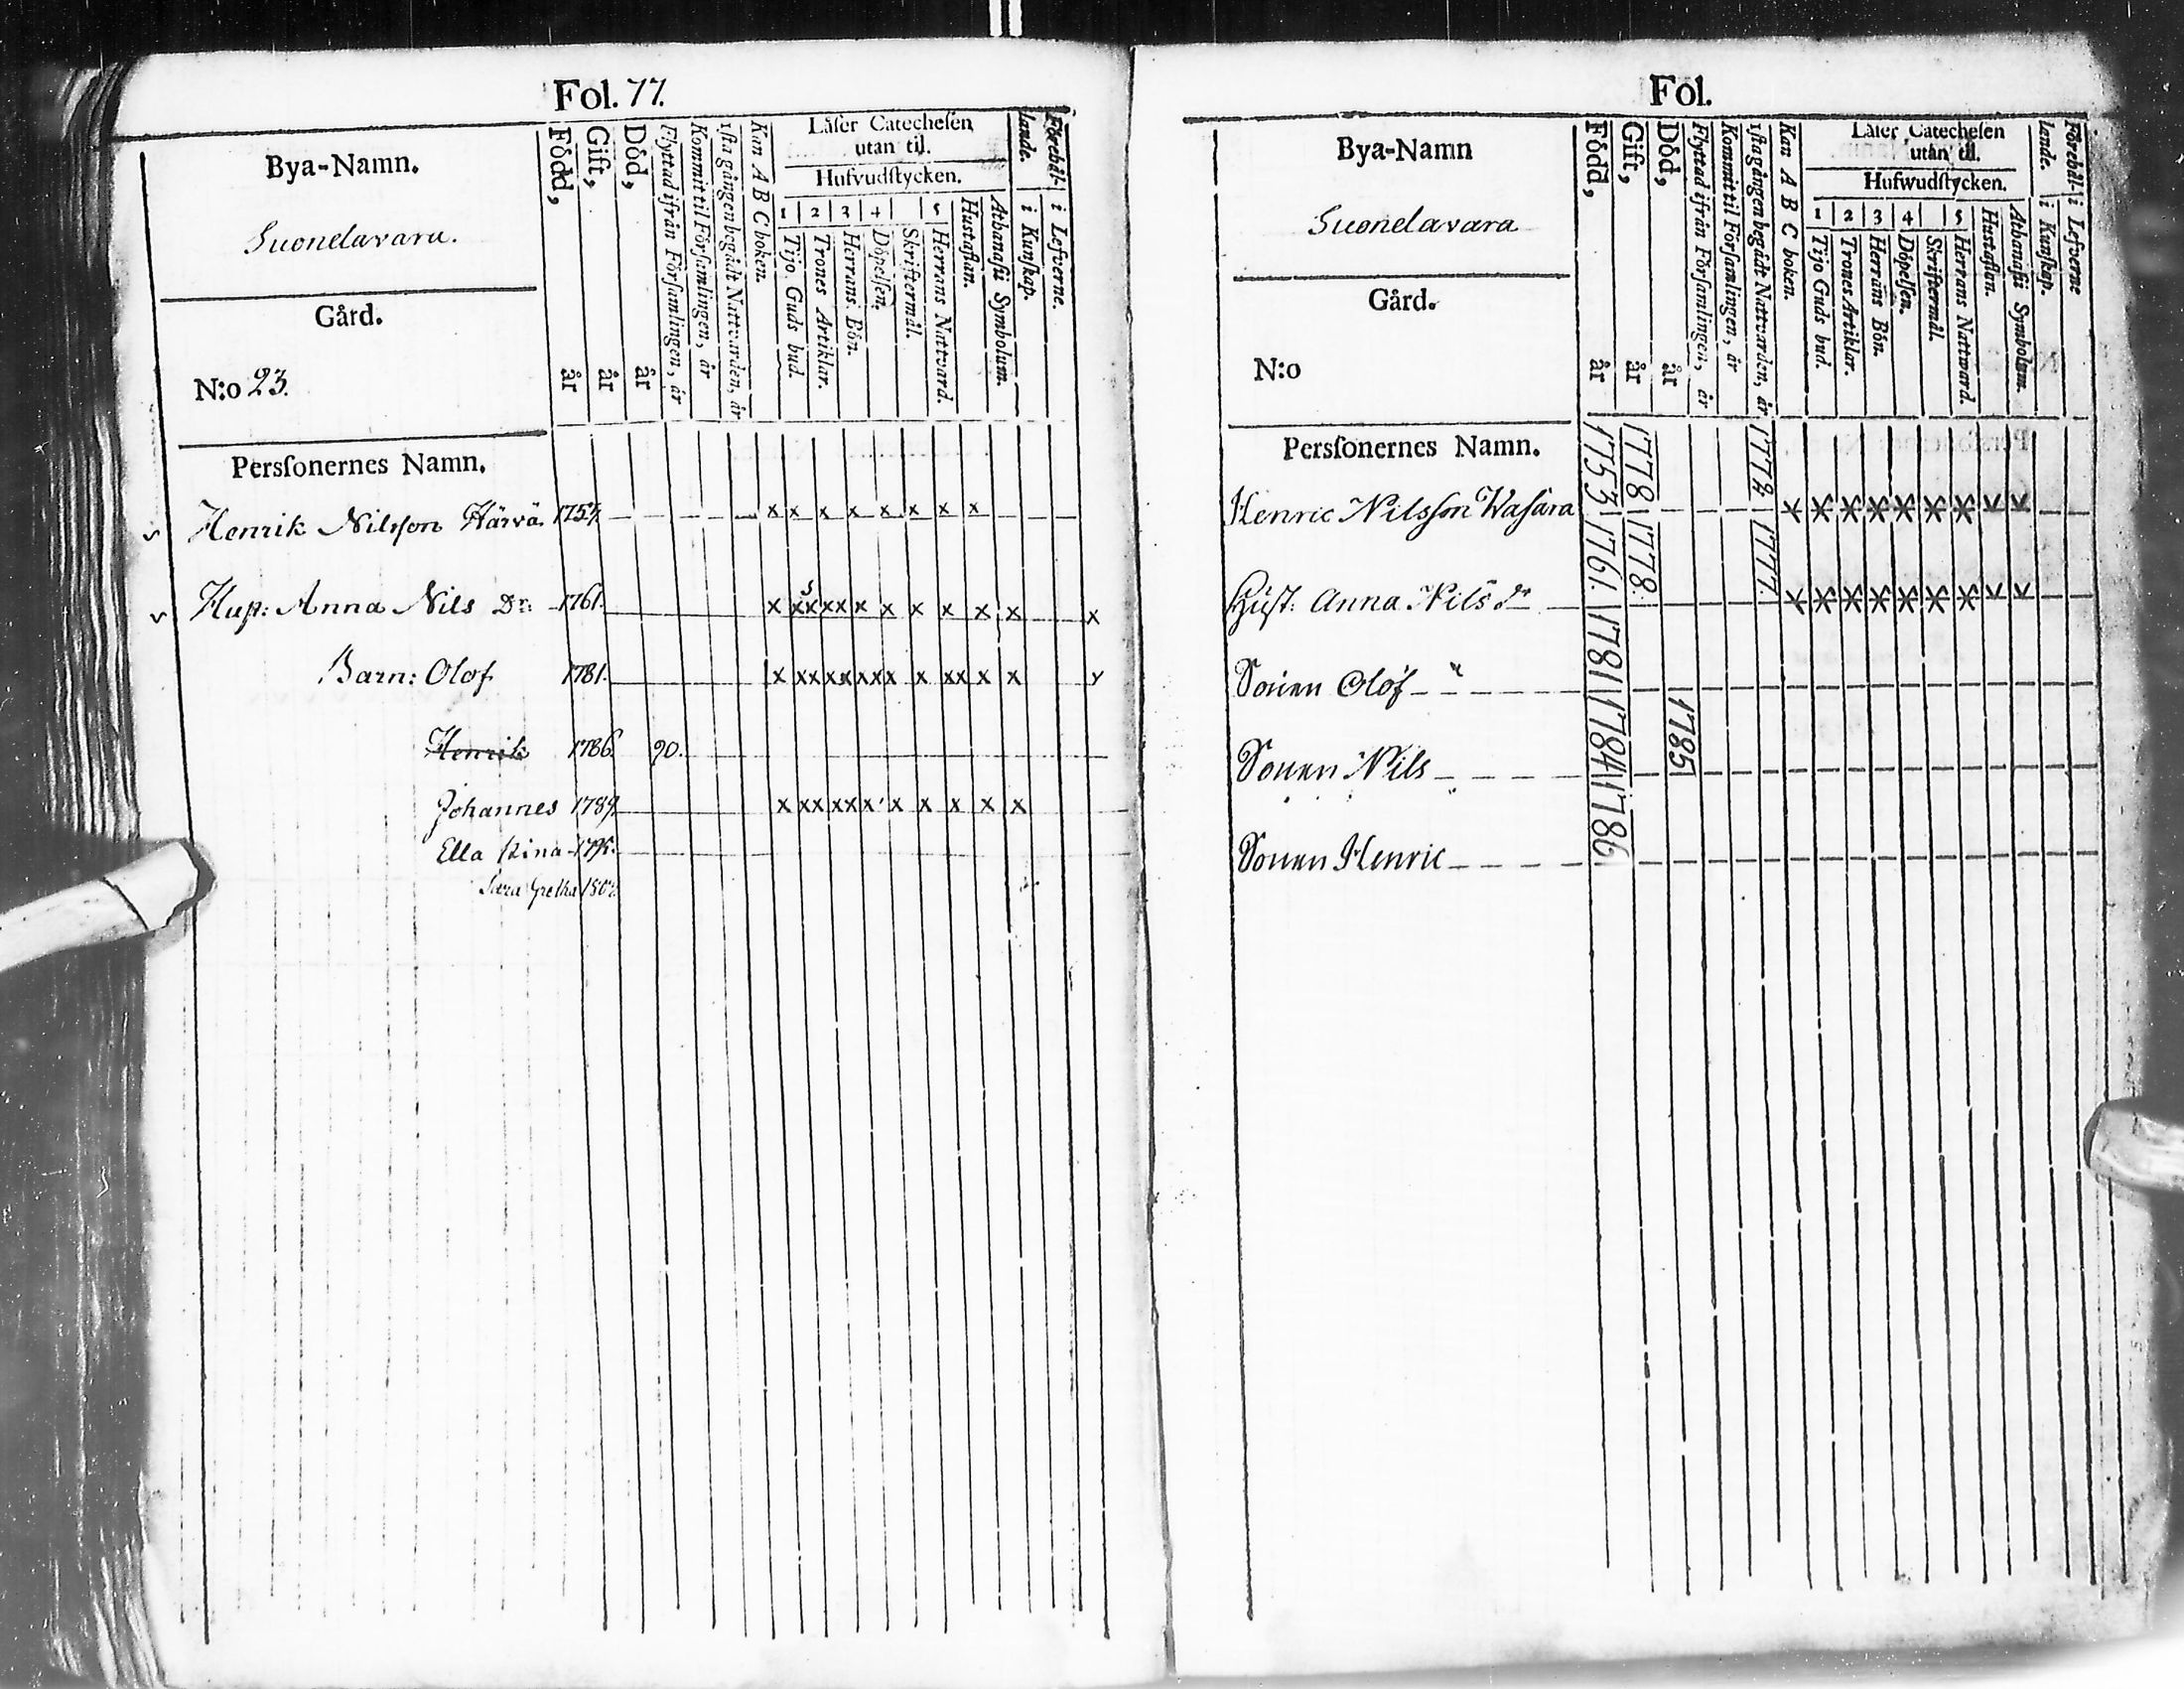 Fol. 77.
Bya-Namn.
Suonelavara.
Gård.
N:o 23.
Född, år
Gift, år
Död, år
Flyttad ifrån Församlingen, år
Kommit til Församlingen, år
1sta gången begådt Nattvarden, år
Kan A B C boken.
Läser Catechesen
utan til.
Hufvudstycken.
1 2 3 4 5
Tijo Guds bud.
Trones Artiklar.
Herrans Bön.
Döpelsen.
Skriftermål.
Herrans Nattvard.
Hustaflan.
Athanasii Symbolum.
Förehål-
lande.
i Kunskap.
i Lefverne.
Perssonernes Namn.
Henrik Nilsson x x x x x x x x
Hust: Anna Nils Dr. 1761. x xx xx x x x x x x x
Barn: Olof 1781. x xx xx xxx x xx x x
Henrik 1786. 90.
Johannes 1789. x xx xx x x x x x x
Ella Stina
Sara Gretha
Fol.
Bya-Namn
Suonelavara
Gård.
N:o
Född, år
Gift, år
Död, år
Flyttad ifrån Församlingen, år
Kommit til Församlingen, år
1sta gången begådt Nattvarden, år
Kan A B C boken.
Läser Catechesen
utan til.
Hufwudstycken.
1 2 3 4 5
Tijo Guds bud.
Trones Artiklar.
Herrans Bön.
Döpelsen.
Skriftermål.
Herrans Nattward.
Hustaflan.
Athanasii Symbolum.
Förehål-
lande.
i Kunskap.
i Lefverne
Perssonernes Namn.
Henric Nilsson Wasara 1753 1778
Hust: Anna Nils dr 1761. 1778. 1777.
Sonen Olof 1781
Sonen Nils 1784 1785
Sonen Henric 1786